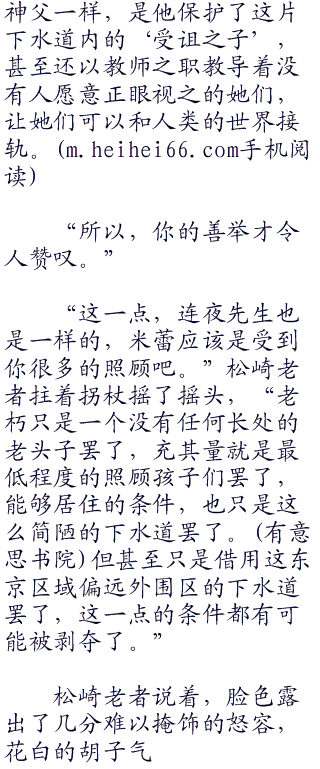 神父一样，是他保护了这片
下水道内的‘受诅之子’，
甚至还以教师之职教导着没
有人愿意正眼视之的她们，
让她们可以和人类的世界接
轨。(m.heihei66.com手机阅
读)
“所以，你的善举才令
人赞叹。”
“这一点，连夜先生也
是一样的，米蕾应该是受到
你很多的照顾吧。”松崎老
者拄着拐杖摇了摇头，“老
朽只是一个没有任何长处的
老头子罢了，充其量就是最
低程度的照顾孩子们罢了，
能够居住的条件，也只是这
么简陋的下水道罢了。(有意
思书院)但甚至只是借用这东
京区域偏远外围区的下水道
罢了，这一点的条件都有可
能被剥夺了。”
松崎老者说着，脸色露
出了几分难以掩饰的怒容，
花白的胡子气